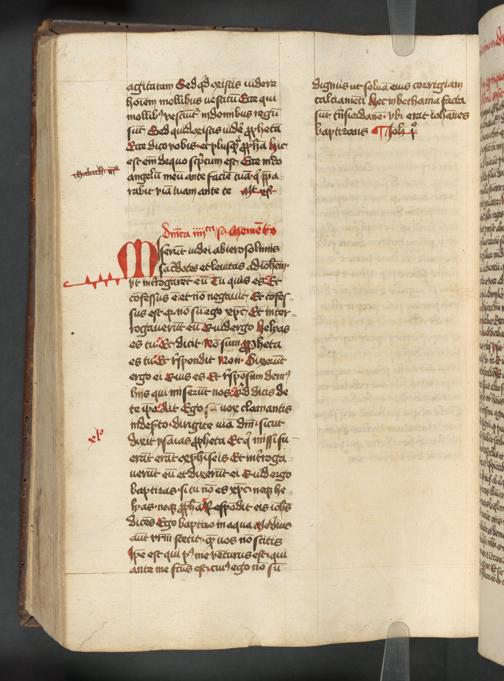 agitatam Sed qd existis videre
hoiem mollibus vestitu Ecce qui
mollibz vestiut in domibus regu
sut Sed quid existis vide ppheta
Ecce dico vobis et plusqz ppha hic
est em de quo scptum est Ecce mitto
angelu meu ante facie tua q ppa
rabit via tuam ante te
Dnica iiii
Miserut iudei ab ierosolimis
sacdotes et levitas ad iohem
vt introgaret eu Tu quis es Et
cofessus e et no negavit Et cofes
sus est q no su ego xpc Et inter
rogaverut eu Quid ergo Helyas
es tu Et dicit No sum ppheta
es tu Et rspondit Non Dixerut
ergo ei Quis es Et rsposum dem9
hiis qui miserut nos Qd dicis de
te ipo Ait Ego su vox clamantis
in deserto dirigite via dni sicut
dixit ysaias ppheta Et q missi fu
erat erat ex phiseis Et introga
verut eu et dixerut ei Quid ergo
baptizas si tu no es xpc neqz he
lyas neqz ppha Respondit eis iohes
dices Ego baptizo in aqua Medius
aut vrm stetit que vos no scitis
Ipe est qui p9 me venturus est qui
ante me fcus est cui9 ego no su
dignus ut solva eius corrigiam
calciameti Hec in bethania facta
sut tns iordane vbi erat iohanes
baptizans Joh i